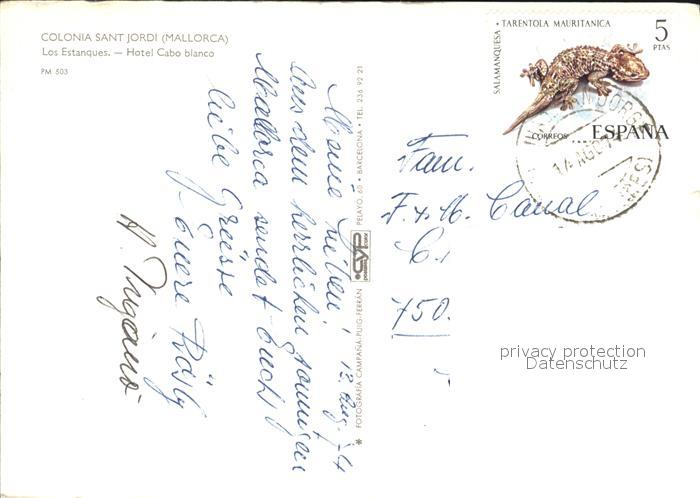 COLONIA SANT JORDI (MALLORCA)
Los Estanques. — Hotel Cabo blanco
PM 503
12. Aug. 74
Meine Lieben!
Aus dem herrlichen sonnigen
Mallorca sendet Euch
liebe Grüsse
Euere Rösly
H.
* FOTOGRAFÍA CAMPAÑÁ-PUIG-FERRÁN
CYP
PELAYO, 60 • BARCELONA • TEL. 236 92 21
SALAMANQUESA • TARENTOLA MAURITANICA
5
PTAS
CORREOS
ESPAÑA
14 AGO
Fam.
F. + M. Canal
C.
750.
privacy protection
Datenschutz